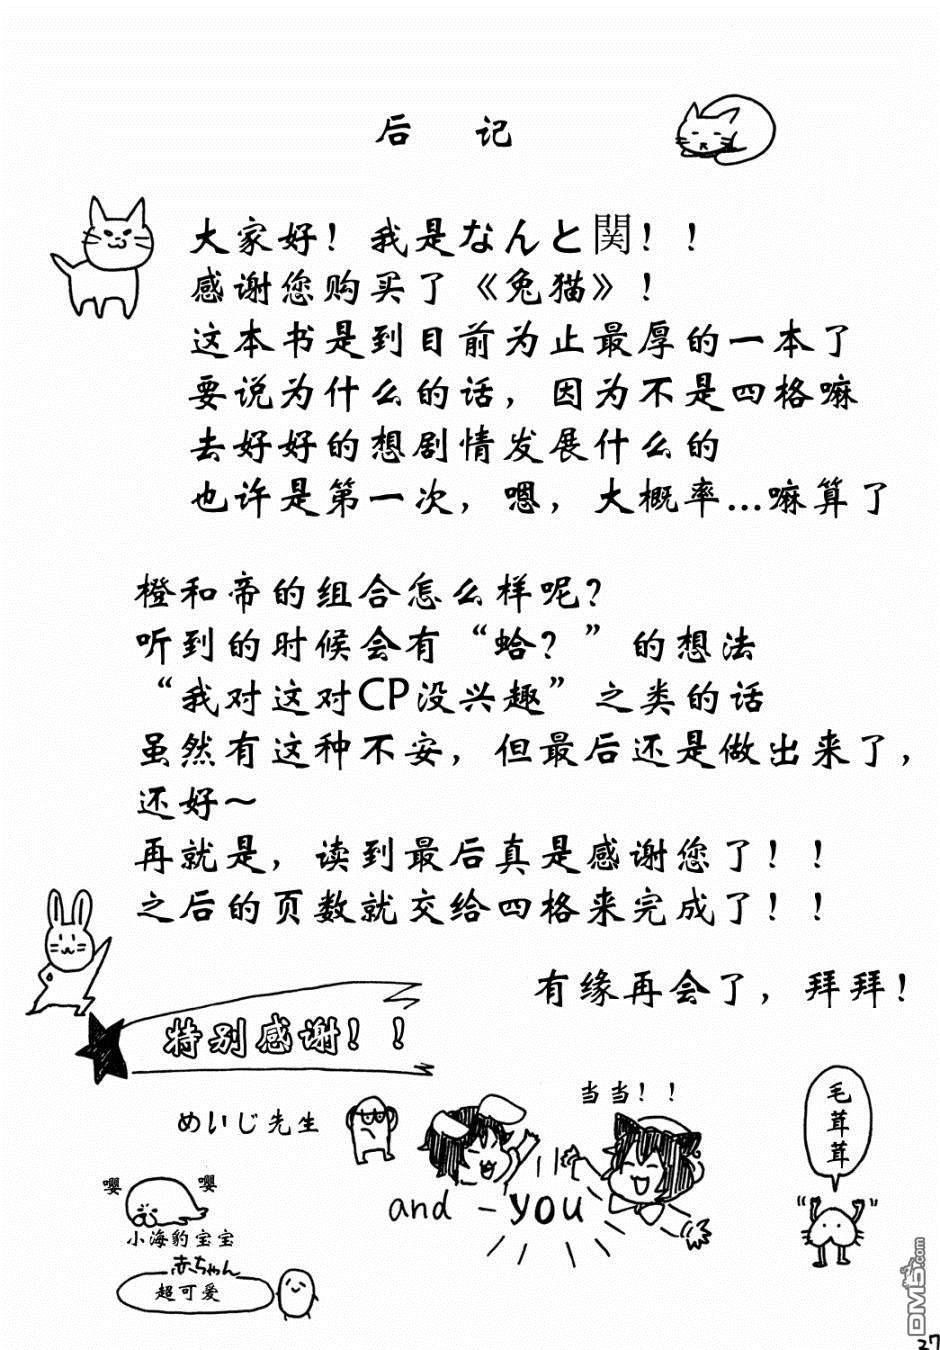 后 记
大家好！我是なんと関！！
感谢您购买了《兔猫》！
这本书是到目前为止最厚的一本了
要说为什么的话，因为不是四格嘛
去好好的想剧情发展什么的
也许是第一次，嗯，大概率...嘛算了
橙和帝的组合怎么样呢？
听到的时候会有“蛤？”的想法
“我对这对CP没兴趣”之类的话
虽然有这种不安，但最后还是做出来了，
还好～
再就是，读到最后真是感谢您了！！
之后的页数就交给四格来完成了！！
有缘再会了，拜拜！
特别感谢！！
めいじ先生
当当！！
毛茸茸
and - you
嘤 嘤
小海豹宝宝
赤ちゃん
超可爱
DM5.com
27